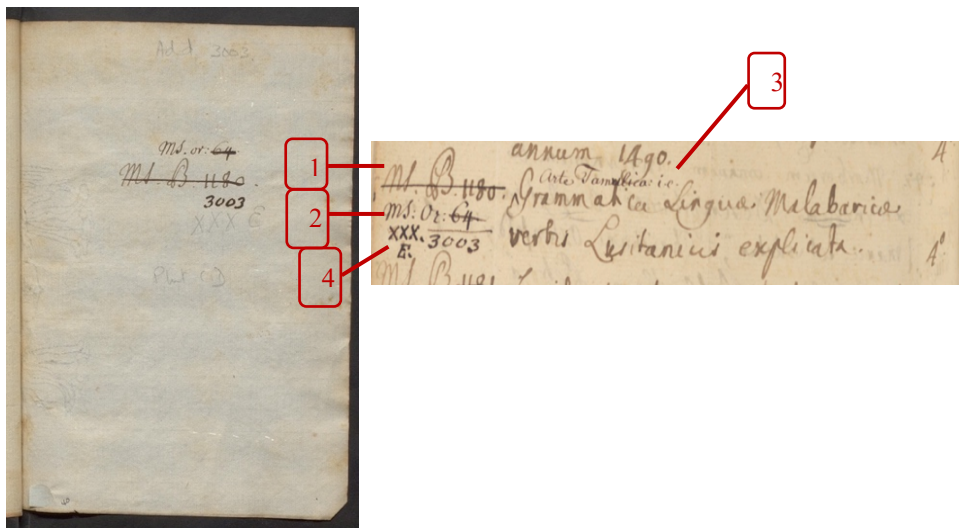 Add. 3003
Ms. or: 64
Ms. B. 1180.
3003
XXX E
1
2
4
3
annum 1490.
4
Ms. B. 1180. Arte Tamulica: i.e.
Grammatica Linguæ Malabaricæ
Ms: Or: 64
XXX. 3003 verbis Lusitanicis explicata.
4
E.
Ms B 1181